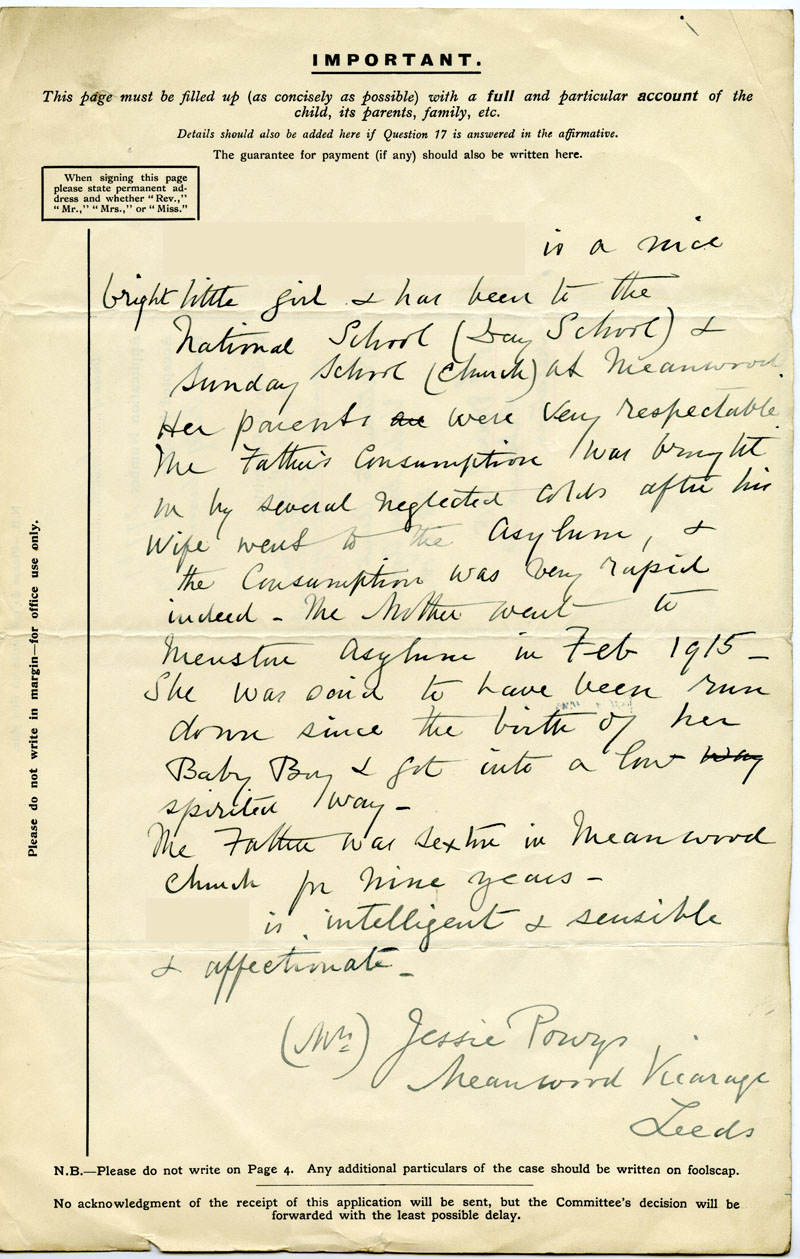 IMPORTANT.
This page must be filled up (as concisely as possible) with a full and particular account of the
child, its parents, family, etc.
Details should also be added here if Question 17 is answered in the affirmative.
The guarantee for payment (if any) should also be written here.
When signing this page
please state permanent ad-
dress and whether “Rev.,”
“Mr.,” “Mrs.,” or “Miss.”
Please do not write in margin—for office use only.
is a nice
bright little girl & has been to the
National School (Day School) &
Sunday School (Church) at Meanwood.
Her parents are were very respectable
The Father's Consumption was brought
on by several neglected colds after his
Wife went to the Asylum, &
the Consumption was very rapid
indeed - The Mother went to
Menston Asylum in Feb 1915 -
She was said to have been run
down since the birth of her
Baby Boy & got into a low way
spirited way -
The Father was Sexton in Meanwood
Church for nine years -
is intelligent & sensible
& affectionate -
(Mrs) Jessie Powys
Meanwood Vicarage
Leeds
N.B.—Please do not write on Page 4. Any additional particulars of the case should be written on foolscap.
No acknowledgment of the receipt of this application will be sent, but the Committee's decision will be
forwarded with the least possible delay.